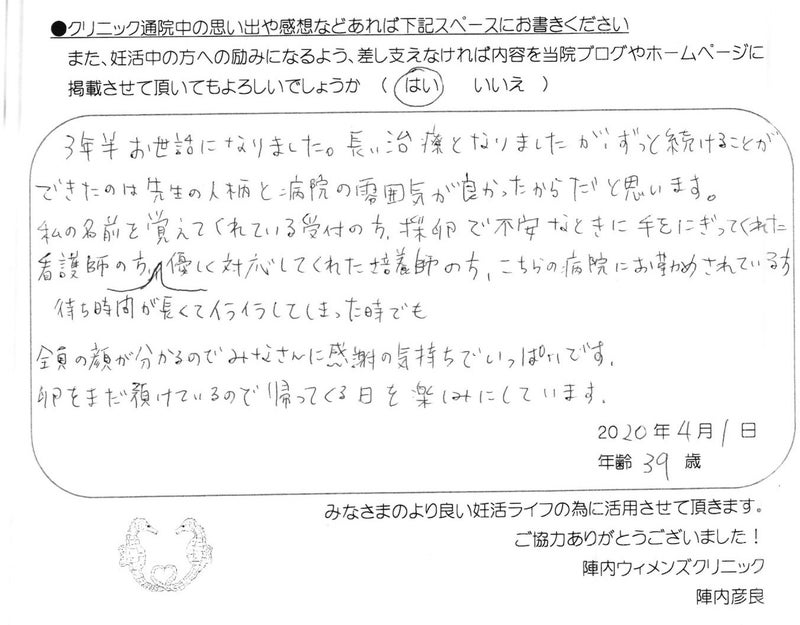 ●クリニック通院中の思い出や感想などあれば下記スペースにお書きください
また、妊活中の方への励みになるよう、差し支えなければ内容を当院ブログやホームページに
掲載させて頂いてもよろしいでしょうか （ はい　　いいえ ）
3年半お世話になりました。長い治療となりましたが、ずっと続けることが
できたのは先生の人柄と病院の雰囲気が良かったからだと思います。
私の名前を覚えてくれている受付の方、採卵で不安なときに手をにぎってくれた
看護師の方、優しく対応してくれた培養師の方、こちらの病院にお勤めされている方
待ち時間が長くてイライラしてしまった時でも
全員の顔が分かるのでみなさんに感謝の気持ちでいっぱいです。
卵をまだ預けているので帰ってくる日を楽しみにしています。
2020年4月1日
年齢 39 歳
みなさまのより良い妊活ライフの為に活用させて頂きます。
ご協力ありがとうございました！
陣内ウィメンズクリニック
陣内彦良